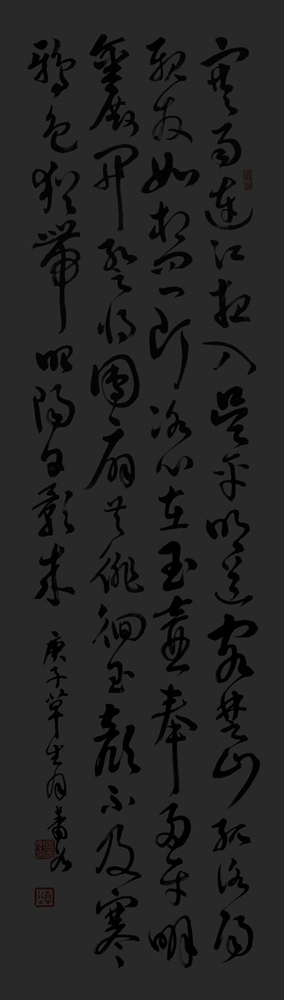 寒雨連江夜入吳平明送客楚山孤洛陽
親友如相問一片冰心在玉壺奉帚平明
金殿開暫將團扇共徘徊玉顏不及寒
鴉色猶帶昭陽日影來
庚子草生月